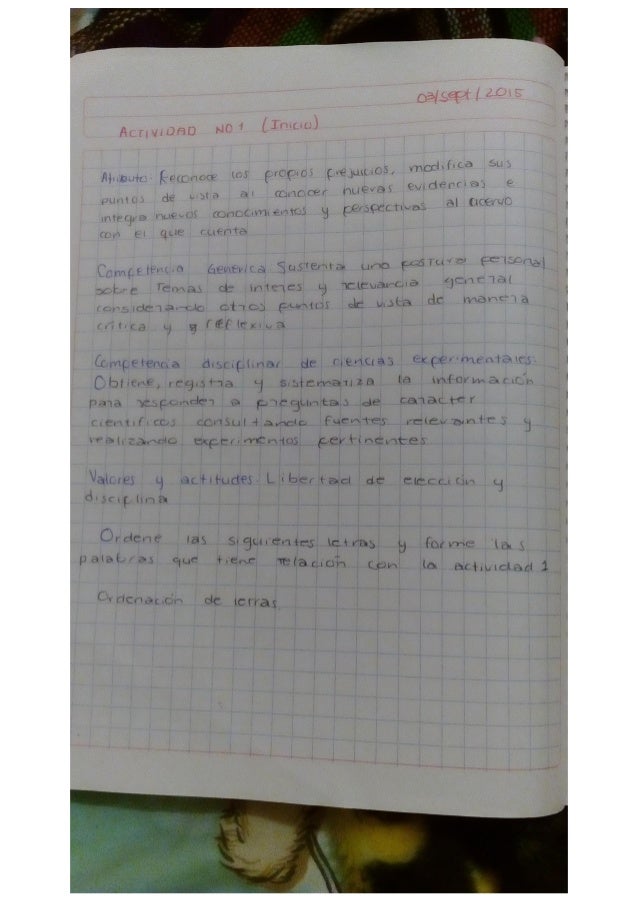 03/sept/2015
ACTIVIDAD NO 1 (Inicio)
Atributo. Reconoce los propios prejuicios, modifica sus
puntos de vista al conocer nuevas evidencias e
integra nuevos conocimientos y perspectivas al acervo
con el que cuenta
Competencia Generica Sustenta una postura personal
sobre Temas de interes y relevancia general
considerando otros puntos de vista de manera
critica y reflexiva
Competencia disciplinar de ciencias experimentales.
Obtiene, registra y sistematiza la información
para responder a preguntas de caracter
cientificos consultando fuentes relevantes y
realizando experimentos pertinentes
Valores y actitudes. Libertad de elección y
disciplina
Ordene las siguientes letras y forme las
palabras que tiene relación con la actividad 1
Ordenación de letras.